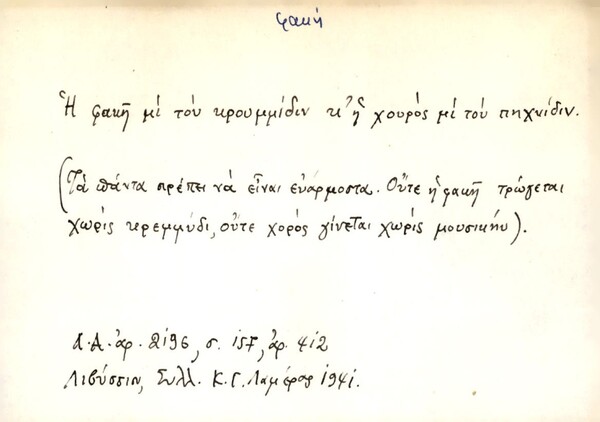 φακή
Ἡ φακῆ μὶ τοὺ κρουμμίδιν κ' ἡ χουρὸς μὶ τοὺ πηχνίδιν.
(Τὰ πάντα πρέπει νὰ εἶναι εὐάρμοστα. Οὔτε ἡ φακῆ τρώγεται
χωρὶς κρεμμύδι, οὔτε χορὸς γίνεται χωρὶς μουσικήν).
Λ.Α. ἀρ. 2196, σ. 157, ἀρ. 412
Λιβύσσιν, Συλλ. Κ.Γ. Λαμέρας 1941.